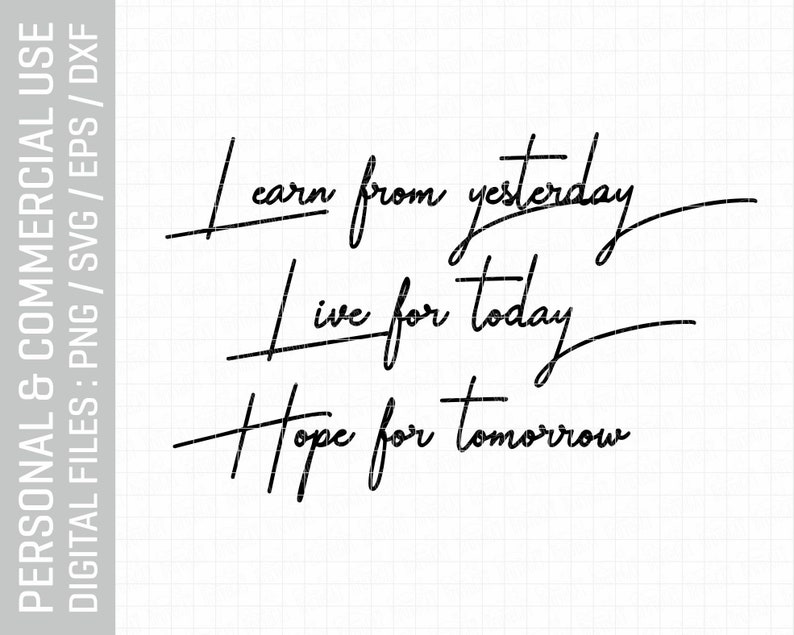 PERSONAL & COMMERCIAL USE
DIGITAL FILES : PNG / SVG / EPS / DXF
Learn from yesterday
Live for today
Hope for tomorrow